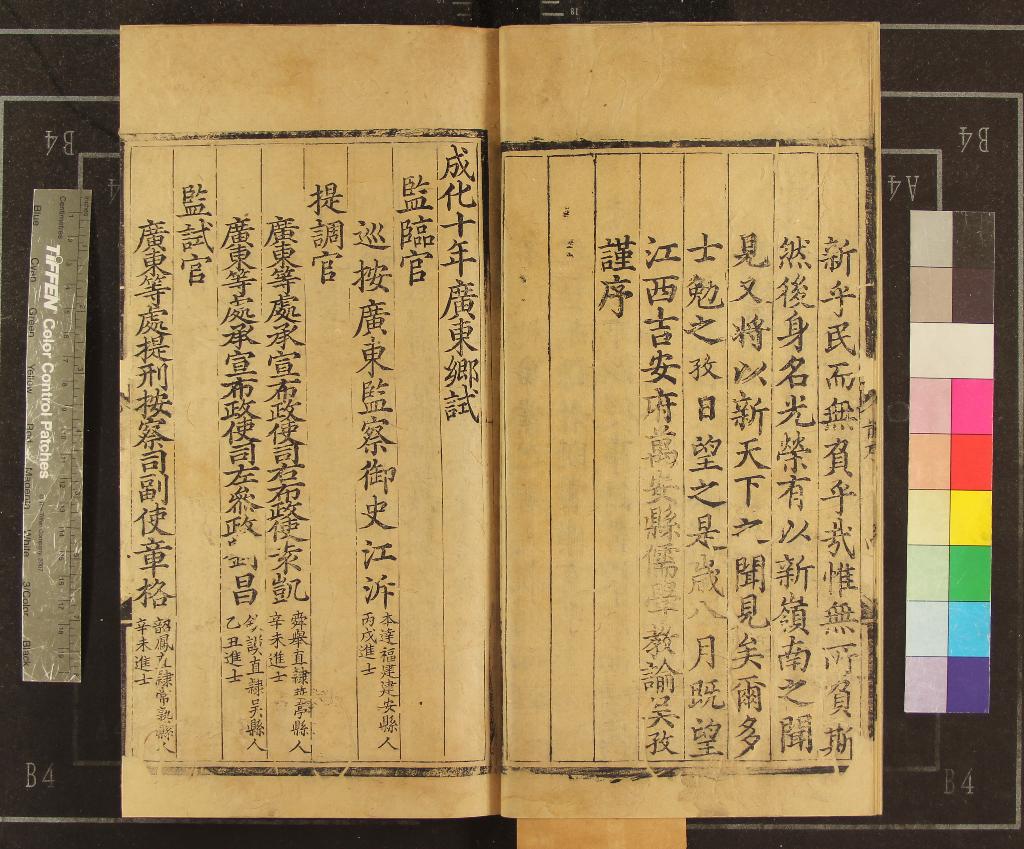 新乎民而無負乎哉惟無所負斯
然後身名光榮有以新嶺南之聞
見又將以新天下之聞見矣爾多
士勉之孜日望之是歲八月既望
江西吉安府萬安縣儒學教諭吳孜
謹序
成化十年廣東鄉試
監臨官
巡按廣東監察御史江泝
本達福建建安縣人
丙戌進士
提調官
廣東等處承宣布政使司右布政使凱
舜舉直隸華亭縣人
辛未進士
廣東等處承宣布政使司左參政劉昌
欽謨直隸吳縣人
乙丑進士
監試官
廣東等處提刑按察司副使章格
韶鳳直隸常熟縣人
辛未進士
TIFFEN Color Control Patches
Centimetres
Inches
Blue
Cyan
Green
Yellow
Red
Magenta
White
3/Color
Black
B4
B4
A4
B4
B4